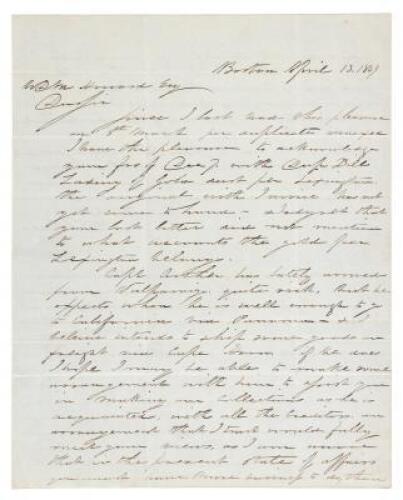 Boston April 13. 189
Wm Howard Esq
Dear Sir
Since I last had this pleasure
on th March per duplicate annexed
I have the pleasure to acknowledge
your fvs of with Cap
Lading of Gold sent per Lexington
the original with Invoice has not
yet come to hand - I regret that
your last letter did not mention
to what accounts the gold per
Lexington belongs.
Capt. Arther has lately arrived
from Valparaiso quite sick, that he
expects when he is well enough to go
to California via Panama - & I
believe intends to ship some goods on
freight via Cape Horn. If he does
I hope I may be able to make some
arrangement with him to assist you
in making our Collections as he is
acquainted with all the Creditors an
arrangement that I trust would fully
meet your views, as I am aware
that in the present state of affairs
you must have more business to do than